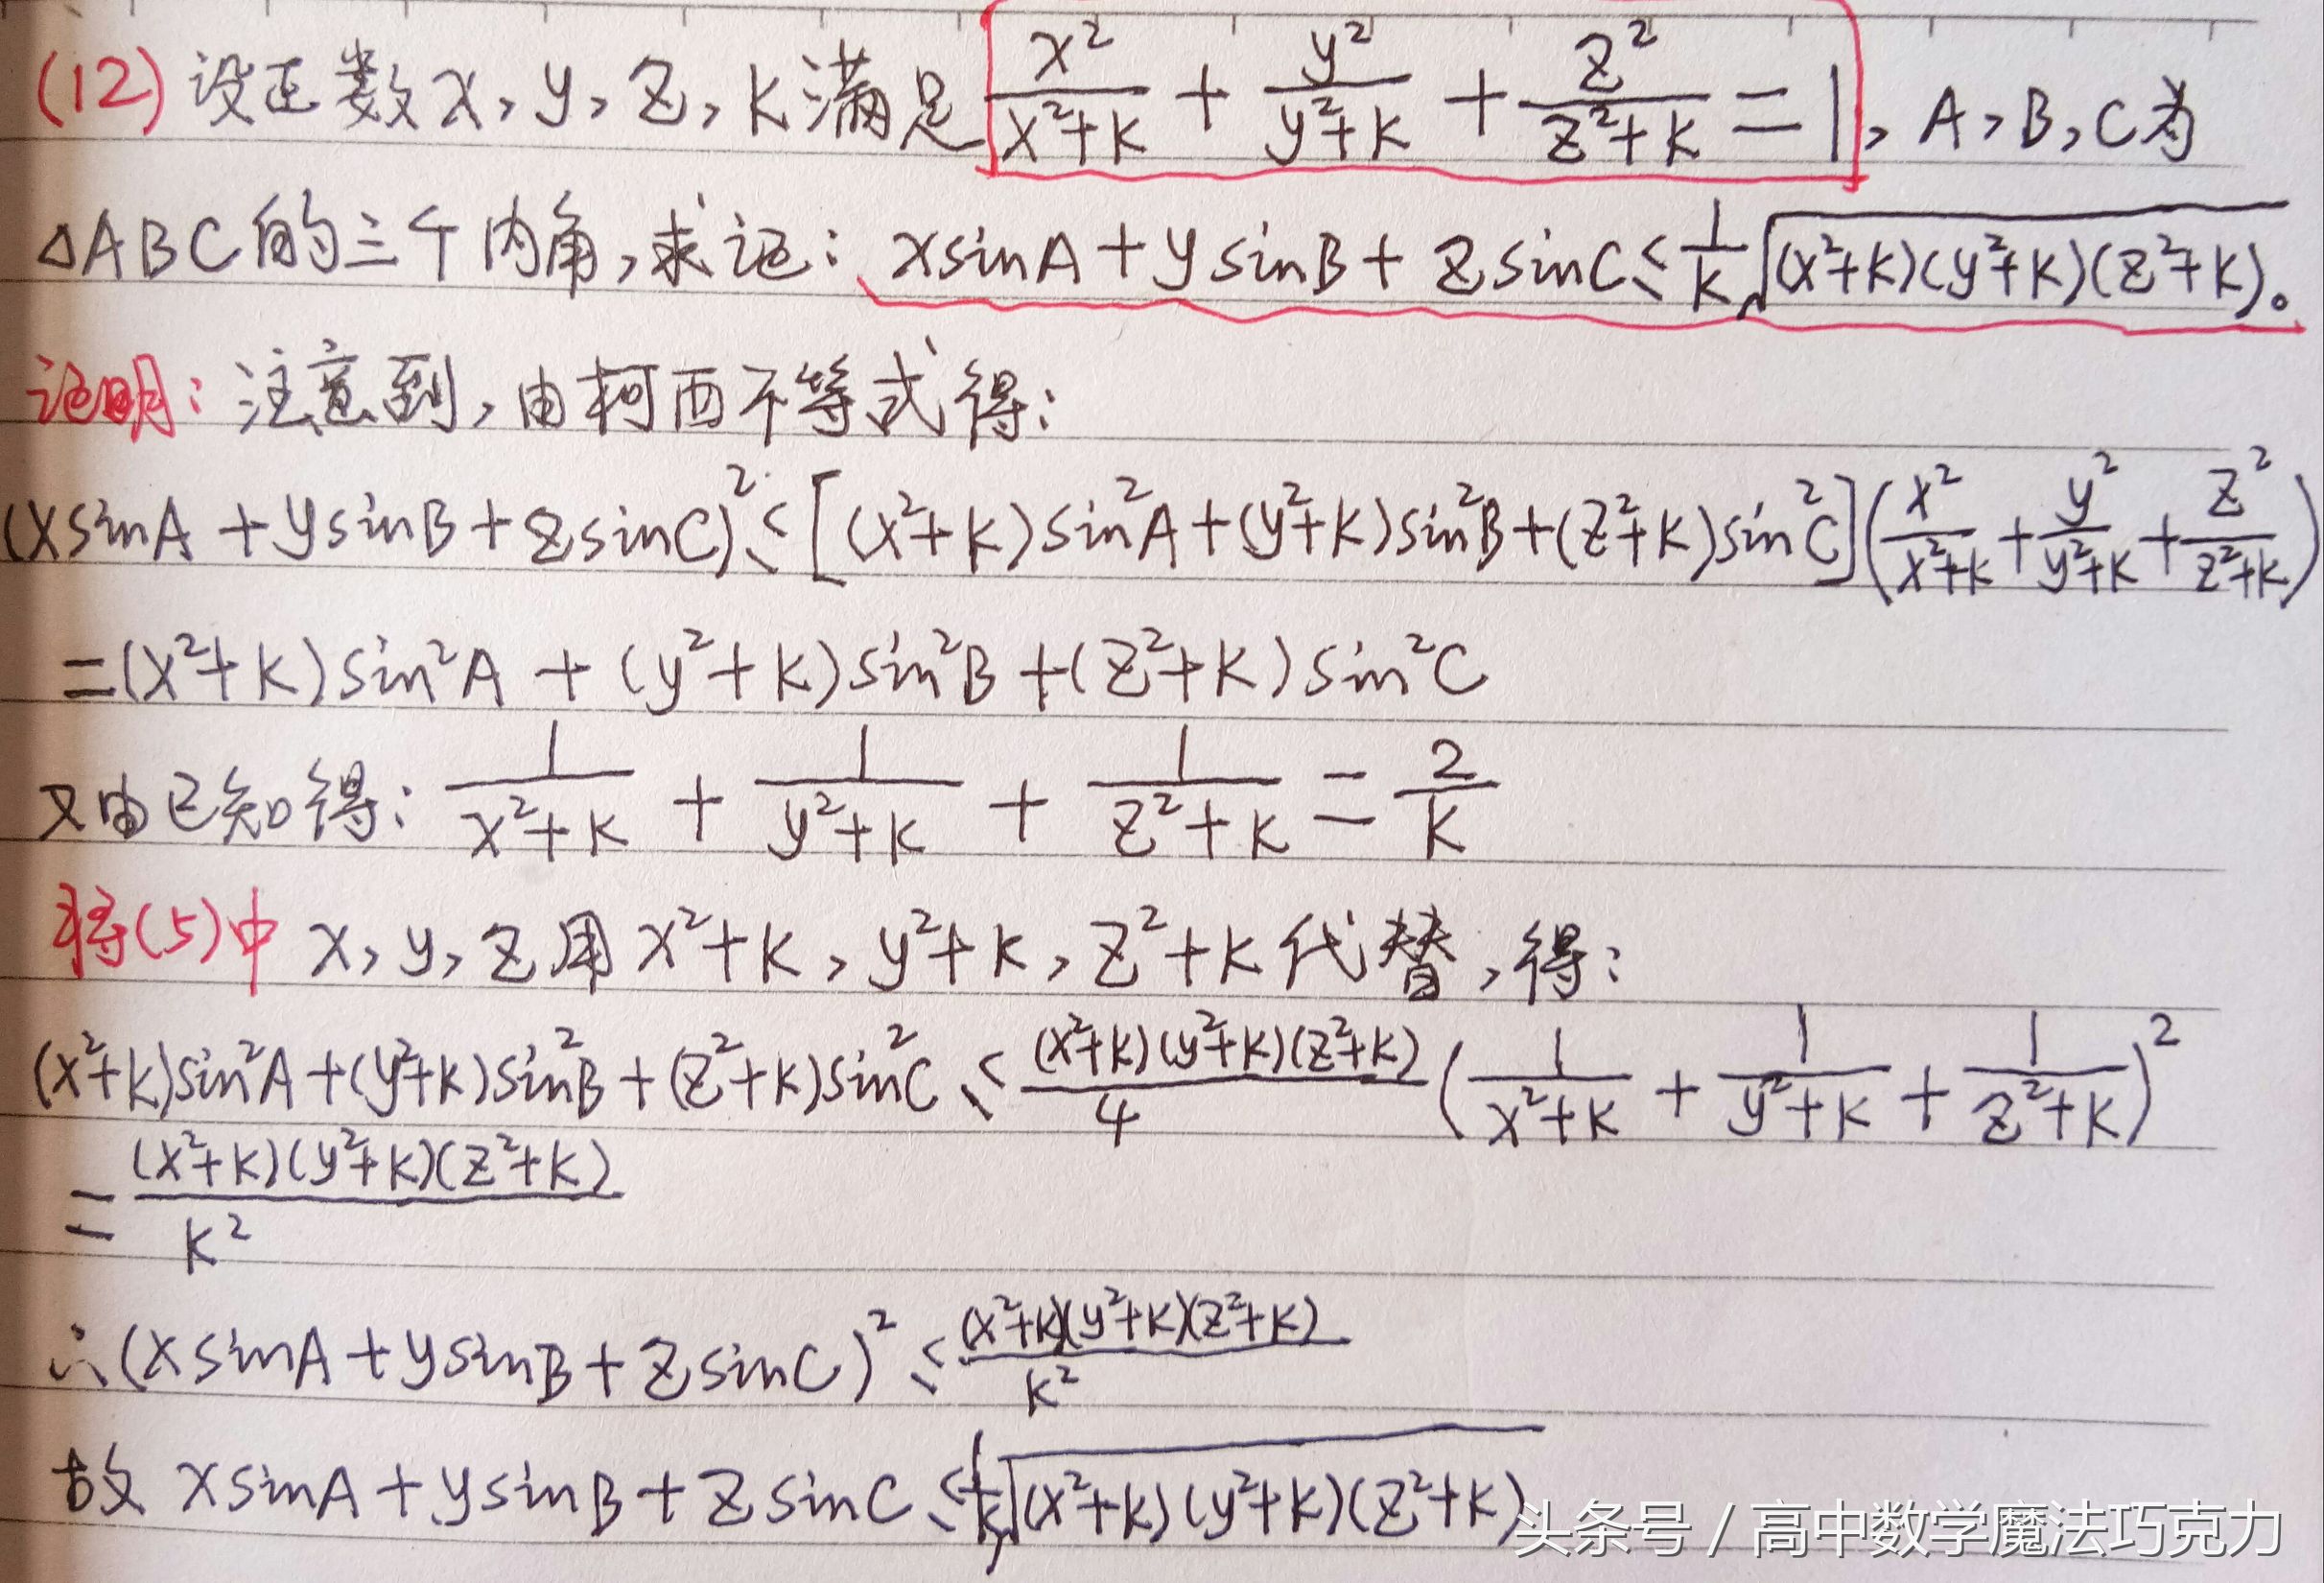 (12) 设正数x,y,z,k满足 x²/(x²+k) + y²/(y²+k) + z²/(z²+k) = 1, A,B,C为
△ABC的三个内角,求证: xsinA+ysinB+zsinC≤1/k √((x²+k)(y²+k)(z²+k))。
证明: 注意到,由柯西不等式得:
(xsinA+ysinB+zsinC)²≤[(x²+k)sin²A+(y²+k)sin²B+(z²+k)sin²C](x²/(x²+k)+y²/(y²+k)+z²/(z²+k))
=(x²+k)sin²A+(y²+k)sin²B+(z²+k)sin²C
又由已知得: 1/(x²+k) + 1/(y²+k) + 1/(z²+k) = 2/k
将(5)中 x,y,z用x²+k,y²+k,z²+k代替,得:
(x²+k)sin²A+(y²+k)sin²B+(z²+k)sin²C≤(x²+k)(y²+k)(z²+k)/4 (1/(x²+k) + 1/(y²+k) + 1/(z²+k))²
=(x²+k)(y²+k)(z²+k)/k²
∴(xsinA+ysinB+zsinC)²≤(x²+k)(y²+k)(z²+k)/k²
故 xsinA+ysinB+zsinC≤1/k √((x²+k)(y²+k)(z²+k))
头条号 / 高中数学魔法巧克力